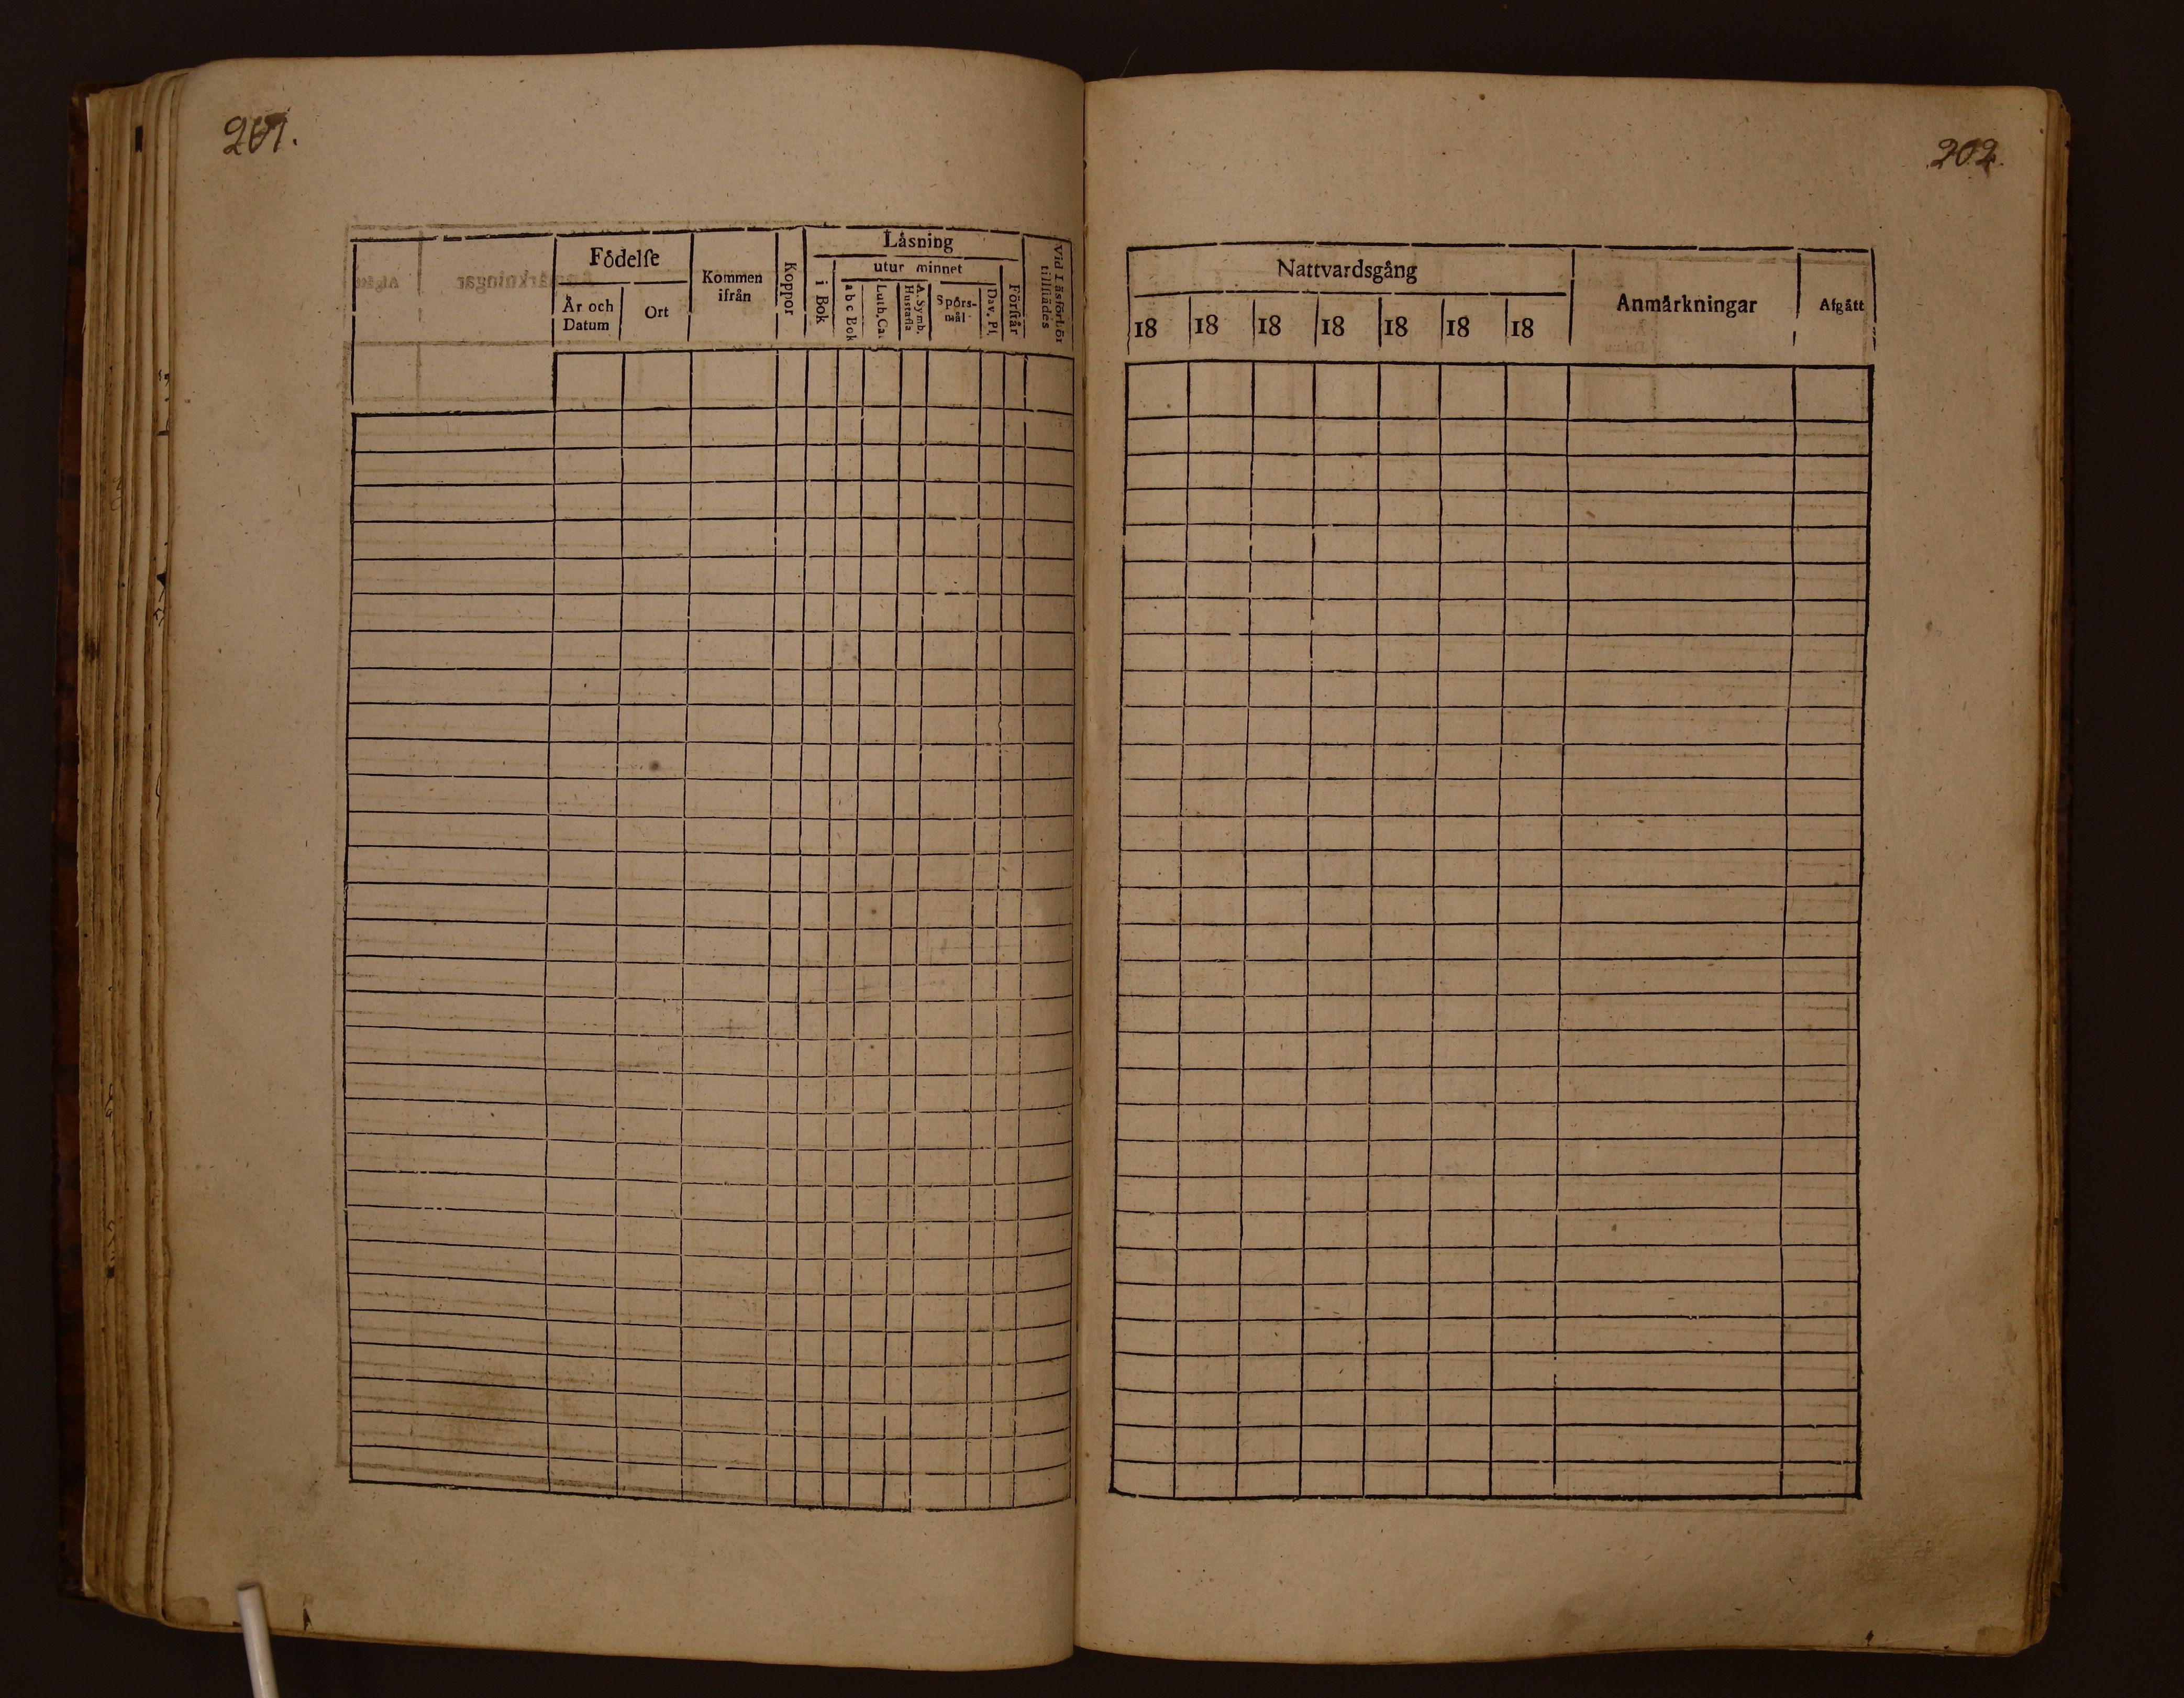 201.
Födelſe
År och
Datum
Ort
Kommen
ifrån
Koppor
Låsning
i Bok
utur minnet
a b c Bok
Luth. Cat
A. Symb.
Hustafla
Spörs-
mål
Dav. Pſ.
Förſtår
Vid Låsförhör
tillſtädes
202.
Nattvardsgång
18 18 18 18 18 18 18
Anmärkningar
Afgått